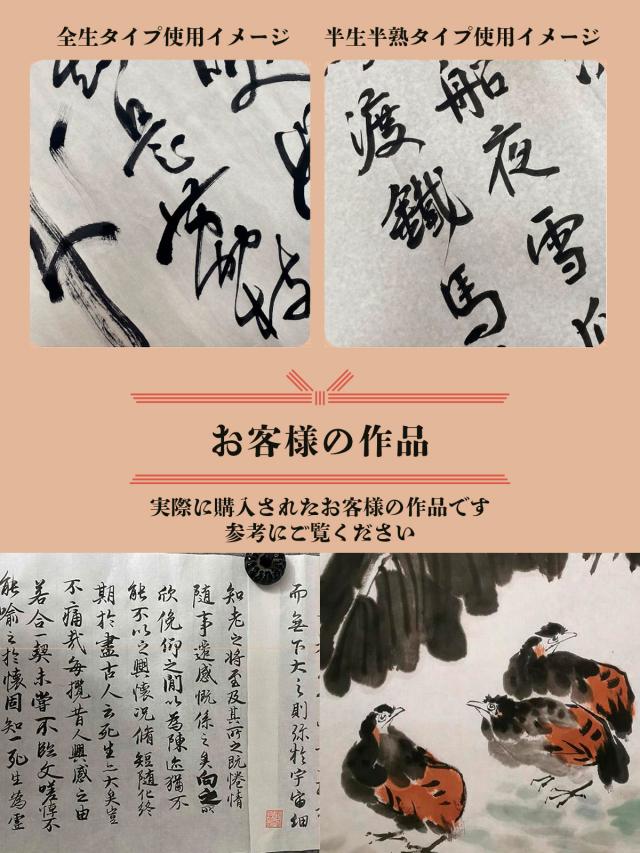 全生タイプ使用イメージ
半生半熟タイプ使用イメージ
船夜雪瓜
渡鐵馬
お客様の作品
実際に購入されたお客様の作品です
参考にご覧ください
而無下大之則彌於宇宙細
知老之将至及其所之既惓情
随事遷感慨係之矣向之所
欣俛仰之間以為陳迹猶不
能不以之興懷况脩短随化終
期於盡古人云死生亦大矣豈
不痛哉每攬昔人興感之由
若合一契未嘗不臨文嗟悼不
能喻之於懷固知一死生為虛